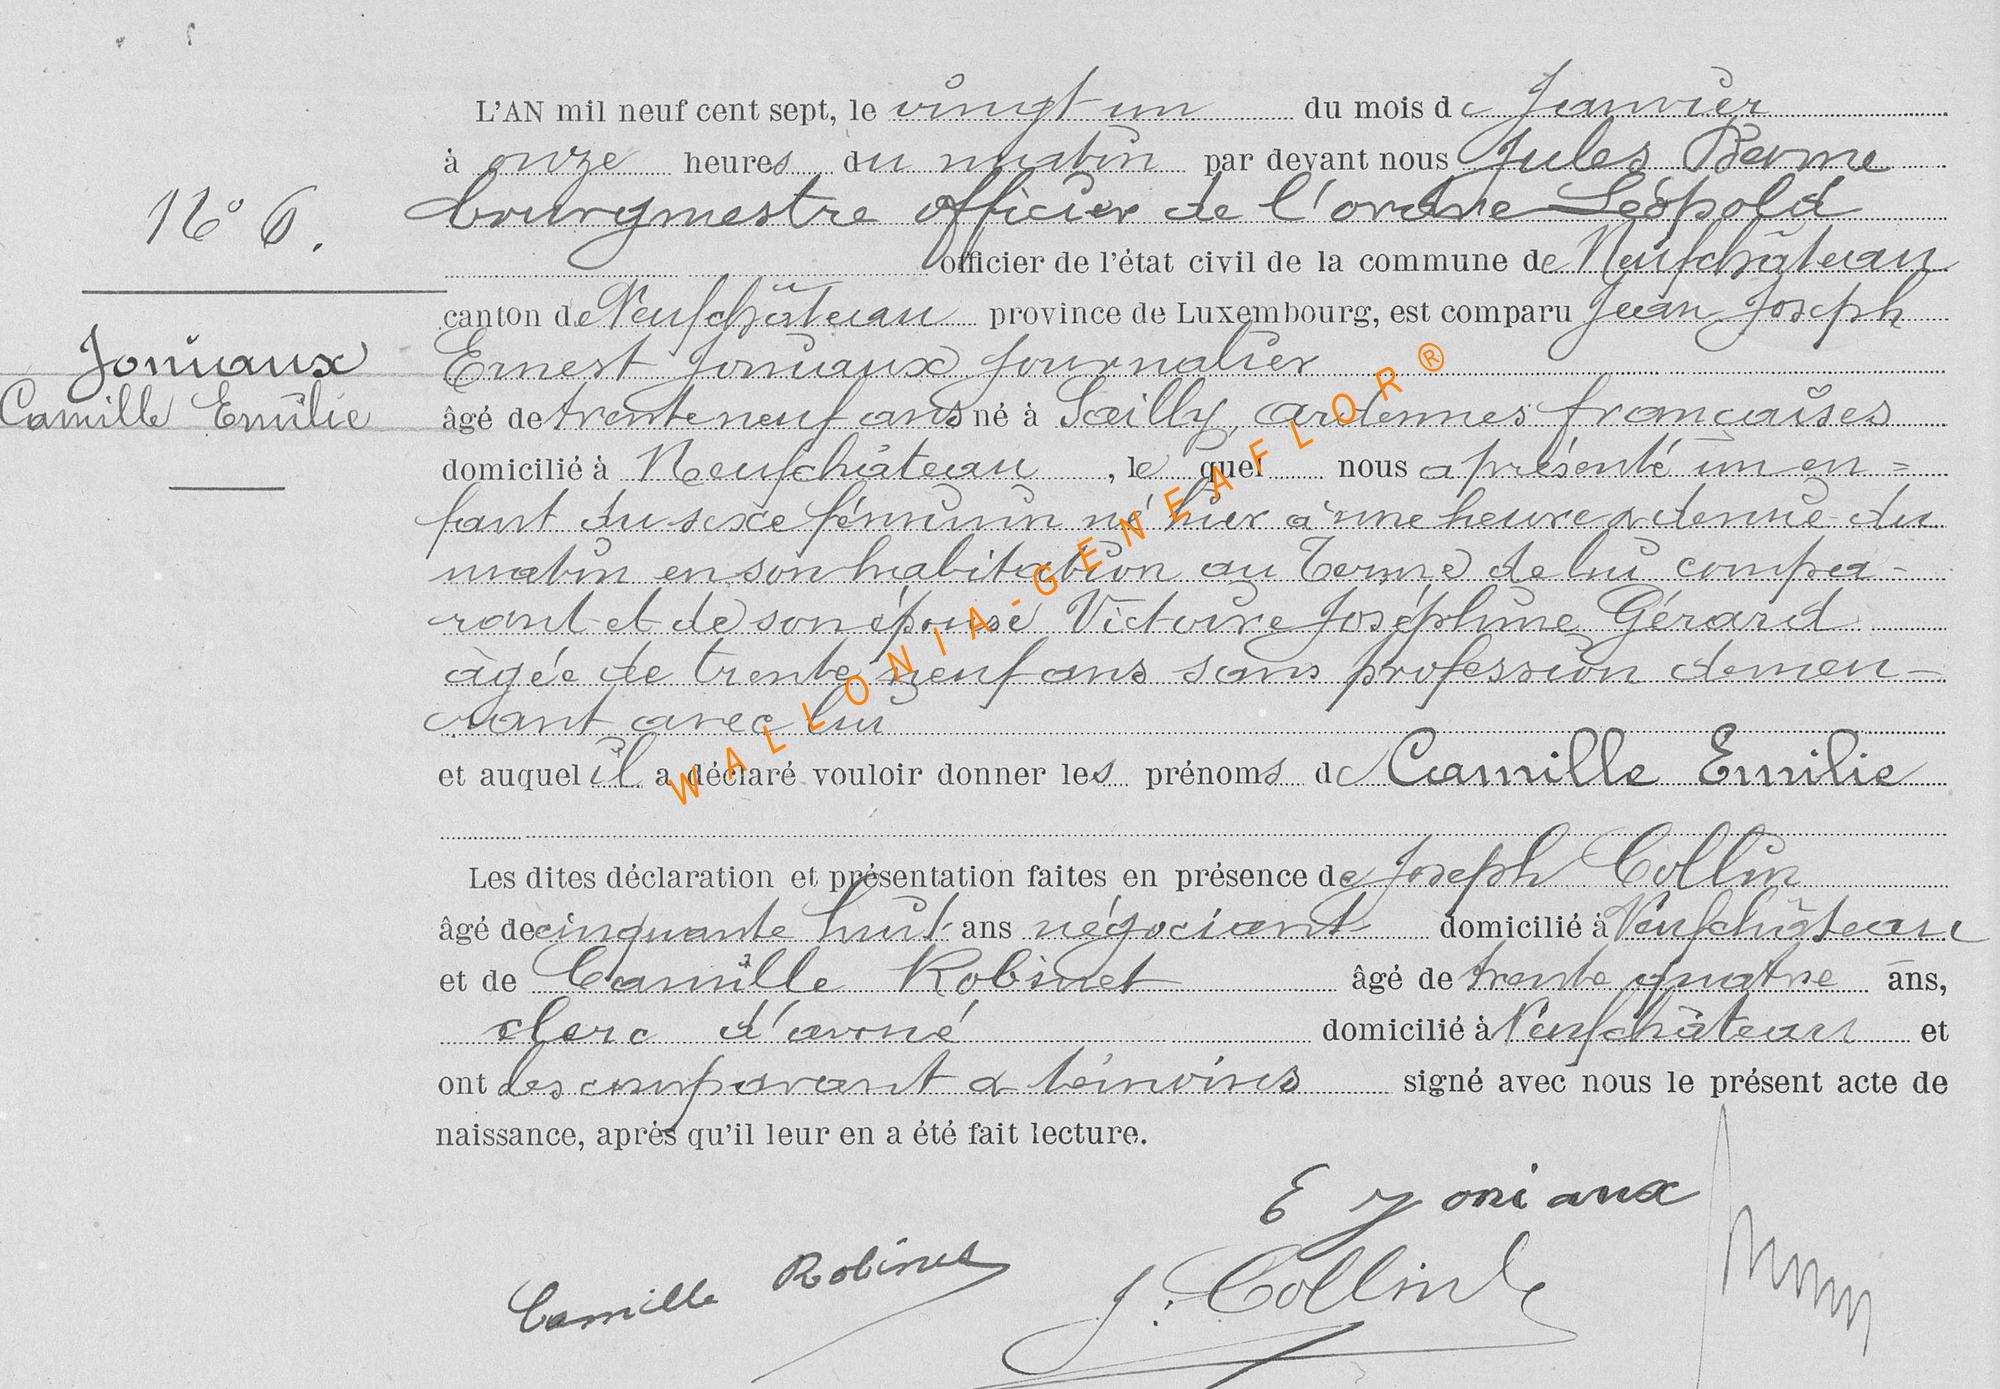 L'AN mil neuf cent sept, le vingt un du mois de Janvier
à onze heures du matin par devant nous Jules
bourgmestre officier de l'ordre Léopold
officier de l'état civil de la commune de Neufchâteau
canton de Neufchâteau province de Luxembourg, est comparu Jean Joseph
Ernest Joniaux journalier
âgé de trente neuf ans né à Sailly, ardennes françaises
domicilié à Neufchâteau, le quel nous a présenté un en=
fant du sexe féminin né hier à une heure & demie du
matin en son habitation au Terme de lui compa-
rant et de son épouse Victoire Joséphine Gérard
âgée de trente neuf ans sans profession demeu-
rant avec lui
et auquel il a déclaré vouloir donner les prénoms de Camille Emilie
Les dites déclaration et présentation faites en présence de Joseph Collin
âgé de cinquante huit ans négociant domicilié à Neufchâteau
et de Camille Robinet âgé de trente quatre ans,
clerc d'avoué domicilié à Neufchâteau et
ont les comparant & témoins signé avec nous le présent acte de
naissance, après qu'il leur en a été fait lecture.
N° 6.
Joniaux
Camille Emilie
E Joniaux
Camille Robinet
J. Collin
WALLONIA-GENEAFLOR®